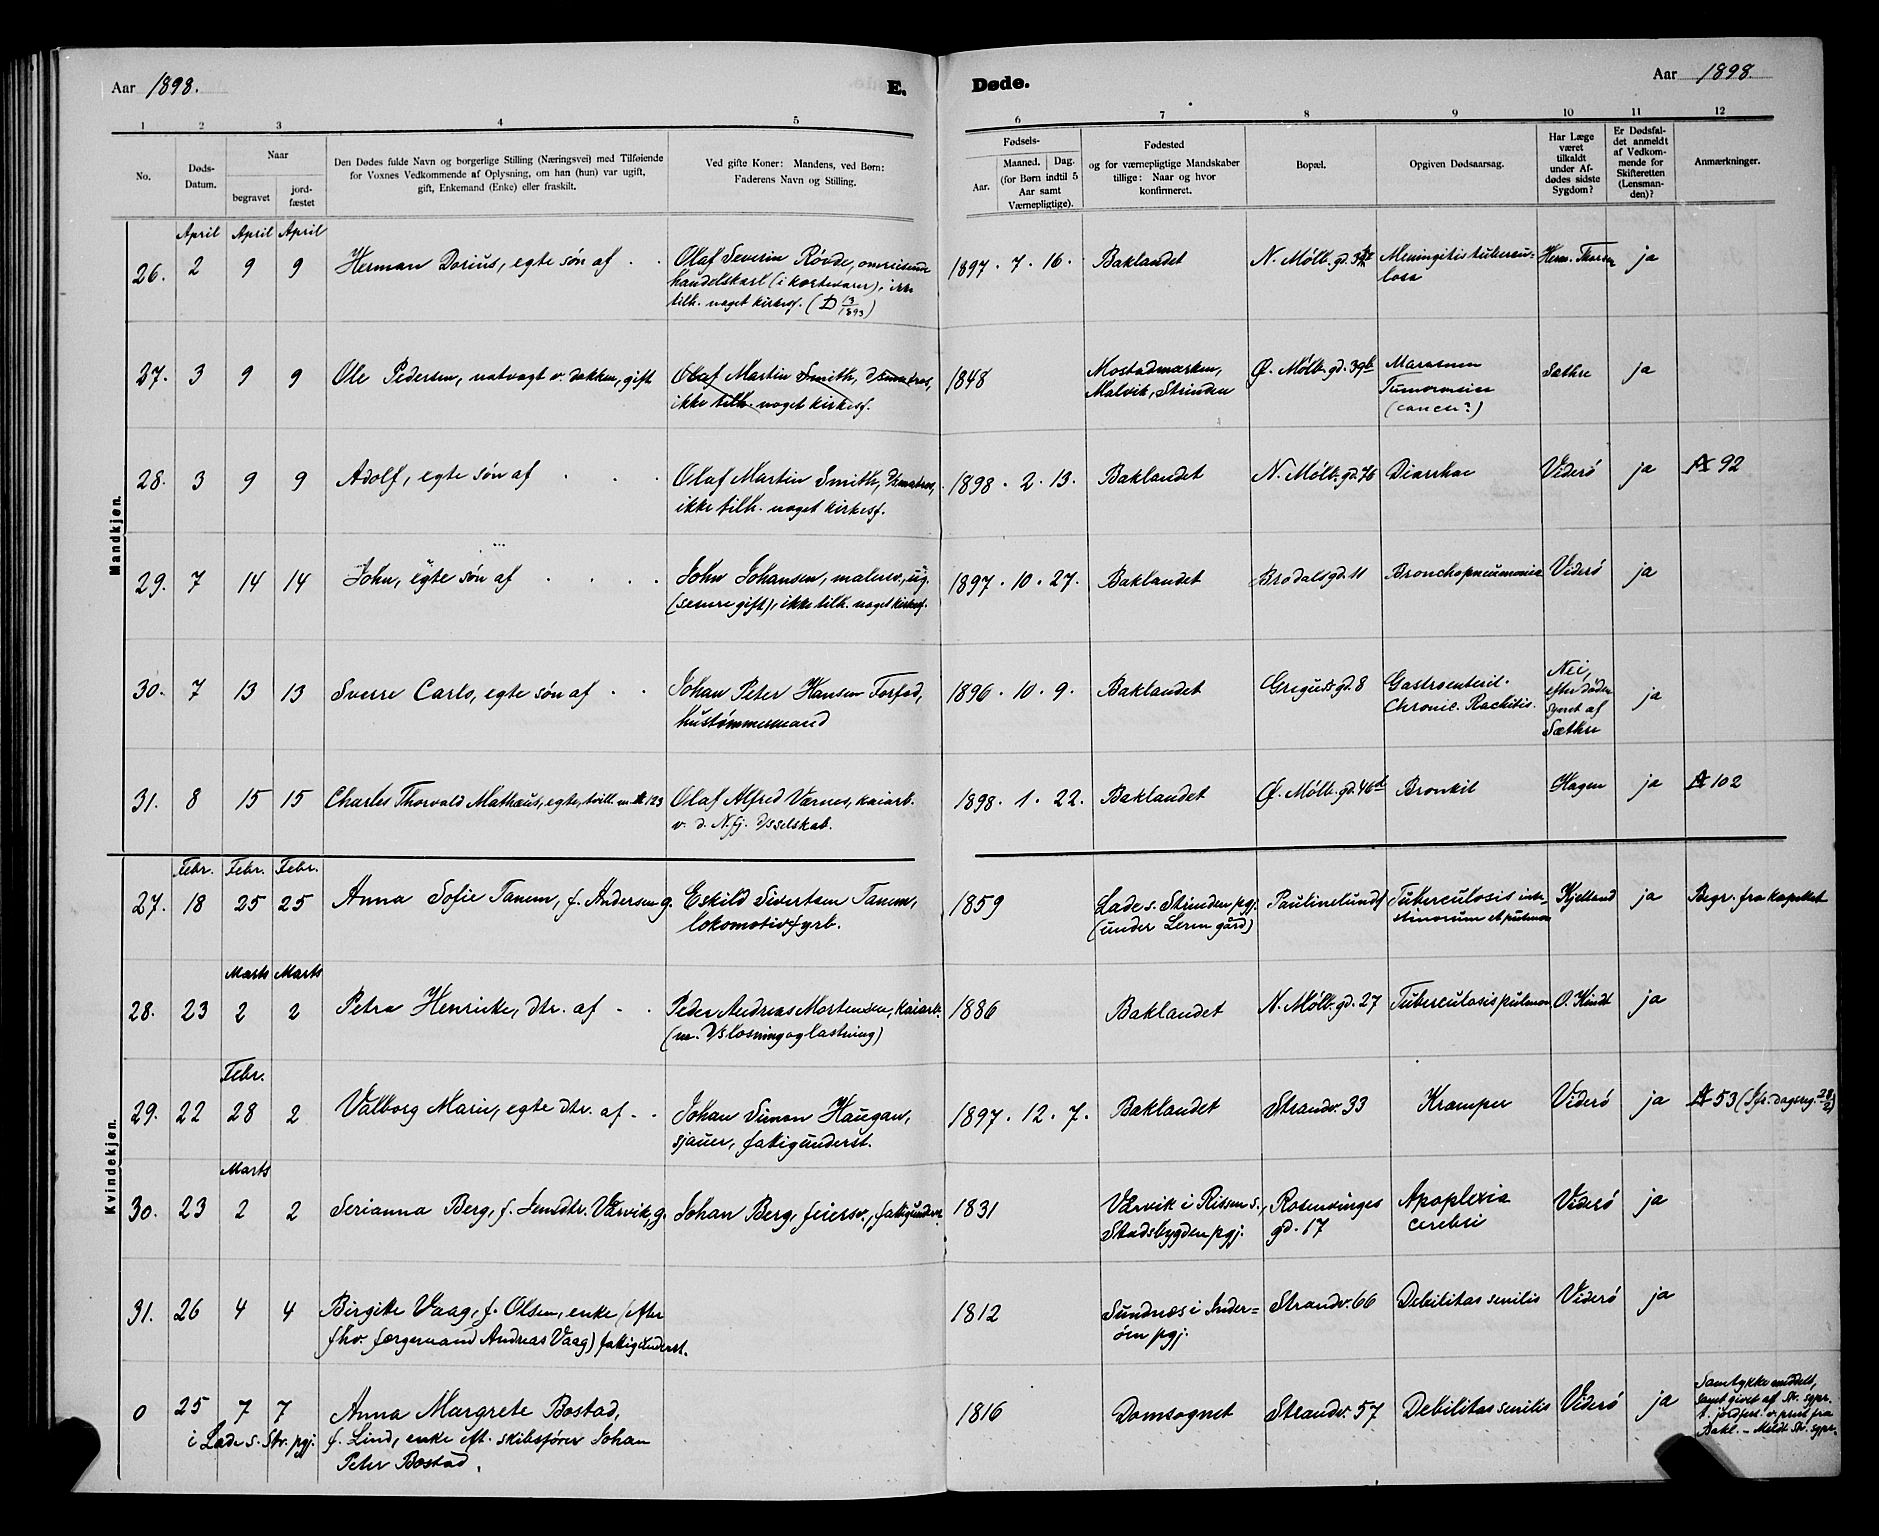 Aar 1898.
E.
Døde.
Aar 1898.
1 2 3 4 5 6 7 8 9 10 11 12
No.
Døds-
Datum.
Naar
begravet
jord-
fæstet
Den Dødes fulde Navn og borgerlige Stilling (Næringsvei) med Tilføiende
for Voxnes Vedkommende af Oplysning, om han (hun) var ugift,
gift, Enkemand (Enke) eller fraskilt.
Ved gifte Koner: Mandens, ved Børn:
Faderens Navn og Stilling.
Fødsels-
Aar.
Maaned. Dag.
(for Børn indtil 5
Aar samt
Værnepligtige).
Fødested
og for værnepligtige Mandskaber
tillige: Naar og hvor
konfirmeret.
Bopæl.
Opgiven Dødsaarsag.
Har Læge
været
tilkaldt
under Af-
dødes sidste
Sygdom?
Er Dødsfal-
det anmeldt
af Vedkom-
mende for
Skifteretten
(Lensman-
den)?
Anmærkninger.
Mandkjøn.
April April April
26. 2 9 9 Herman Dorius, egte søn af
Olaf Severin Røvde, omreisende
handelskarl (i kortevarer), ikke
tilh. noget kirkesf. (D 13/1893)
1897. 7. 16. Baklandet
N. Møllb. gd.
Meningitis tubercu-
losa
Herm. ja
27. 3 9 9 Ole Pedersen, natvagt v. dokken, gift
Olaf Martin Smith, Dsmatros,
ikke tilh. noget kirkesf.
1848
Mostadmarken,
Malvik, Strinden
Ø. Møllb. gd. 39b
Marasmus
(cancer?)
Sæthre ja
28. 3 9 9 Adolf, egte søn af
Olaf Martin Smith, Dsmatros,
ikke tilh. noget kirkesf.
1898. 2. 13. Baklandet N. Møllb. gd. 7b Diarrhoe Viderö ja A 92
29. 7 14 14 John, egte søn af
John Johansen, maler, ug.
(senere gift), ikke tilh. noget kirkesf.
1897. 10. 27. Baklandet Brodalsgd. 11 Bronchopneumonia Viderö ja
30. 7 13 13 Sverre Carlo, egte søn af
Johan Peter Hansen Forfod,
hustømmermand
1896. 10. 9. Baklandet Gregusgd. 8
Gastroenterit.
Chronic. Rachitis.
Nei,
efter døden
synet af
Sæthre
ja
31. 8 15 15 Charles Thorvald Mathæus, egte, tvill. m. A 123
Olaf Alfred Værnes, kaiarb.
v. d. N. fj. Dsselskab.
1898. 1. 22. Baklandet Ø. Møllb. gd. 46d Bronkit Hagen ja A 102
Kvindekjøn.
Febr. Febr. Febr.
27. 18 25 25 Anna Sofie Tanem, f. Andersen g.
Eskild Sivertsen Tanem,
lokomotivfyrb.
1859
Lade s. Strinden pgj.
(under Leren gård)
Paulinelund
Tuberculosis inte-
stinorum et pulmon
Kjelland ja Begr. fra kapellet
Marts Marts
28. 23 2 2 Petra Henrikke, dtr. af
Peder Andreas Mortensen, kaiarb.
(m. Ds losning og lastning)
1886 Baklandet N. Møllb. gd. 27 Tuberculosis pulmon O. Hindt ja
Febr.
29. 22 28 2 Valborg Marie, egte dtr. af
Johan Simon Haugan,
sjauer, fatigunderst.
1897. 12. 7. Baklandet Strandv. 33 Kramper Viderö ja A 53 (Sfr. dagreg. 28/2)
Marts
30. 23 2 2 Serianna Berg, f. Værvik, g.
Johan Berg, feiersv., fatigunder.
1831
Værvik i Rissen s.,
Stadsbygden pgj.
Rosenvinges
gd. 17
Apoplexia
cerebri
Viderö ja
31. 26 4 4 Birgitte Vaag, f. Olsen, enke (efter
fhv. færgemand Andreas Vaag) fatigunderst.
1812
Sundnæs i Inder-
øen pgj.
Strandv. 66 Debilitas senilis Viderö ja
0 25 7 7 Anna Margrete Bostad,
i Lade s. Str. pgj. f. Lind, enke eft. skibsfører Johan
Peter Bostad.
1816 Domsognet Strandv. 57 Debilitas senilis Viderö ja
Samtykke meddelt,
samt givet af Str. sgpr.
t. jordfest. v. prest fra
Bakl. – Meldt Str. sgpr.